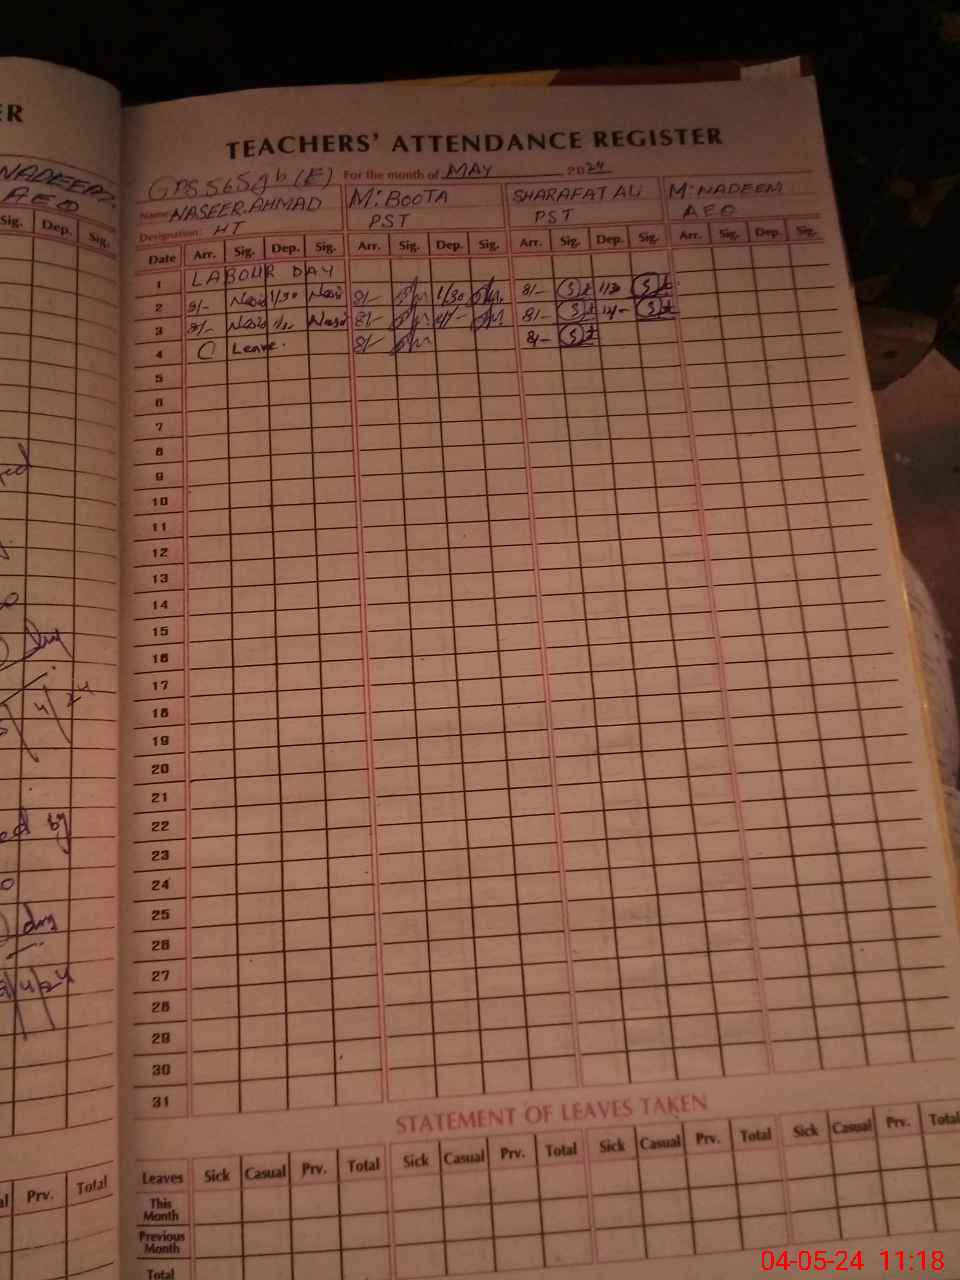 ER
NADEEM.
AEO
Sig. Dep. Sig.
ed by
Prv. Total
TEACHERS' ATTENDANCE REGISTER
GPS 565 gb (E) For the month of MAY 2024
Name: NASEER. AHMAD M: BOOTA SHARAFAT ALI M: NADEEM
Designation: HT PST PST AEO
Date Arr. Sig. Dep. Sig. Arr. Sig. Dep. Sig. Arr. Sig. Dep. Sig. Arr. Sig. Dep. Sig.
1 LABOUR DAY
2 8/- 1/30 8/- 1/30 8/- 1/30
3 8/- 8/- 8/-
4 Leave. 8/- 8/-
5
6
7
8
9
10
11
12
13
14
15
16
17
18
19
20
21
22
23
24
25
26
27
28
29
30
31
STATEMENT OF LEAVES TAKEN
Leaves Sick Casual Prv. Total Sick Casual Prv. Total Sick Casual Prv. Total Sick Casual Prv. Total
This
Month
Previous
Month
Total
04-05-24 11:18